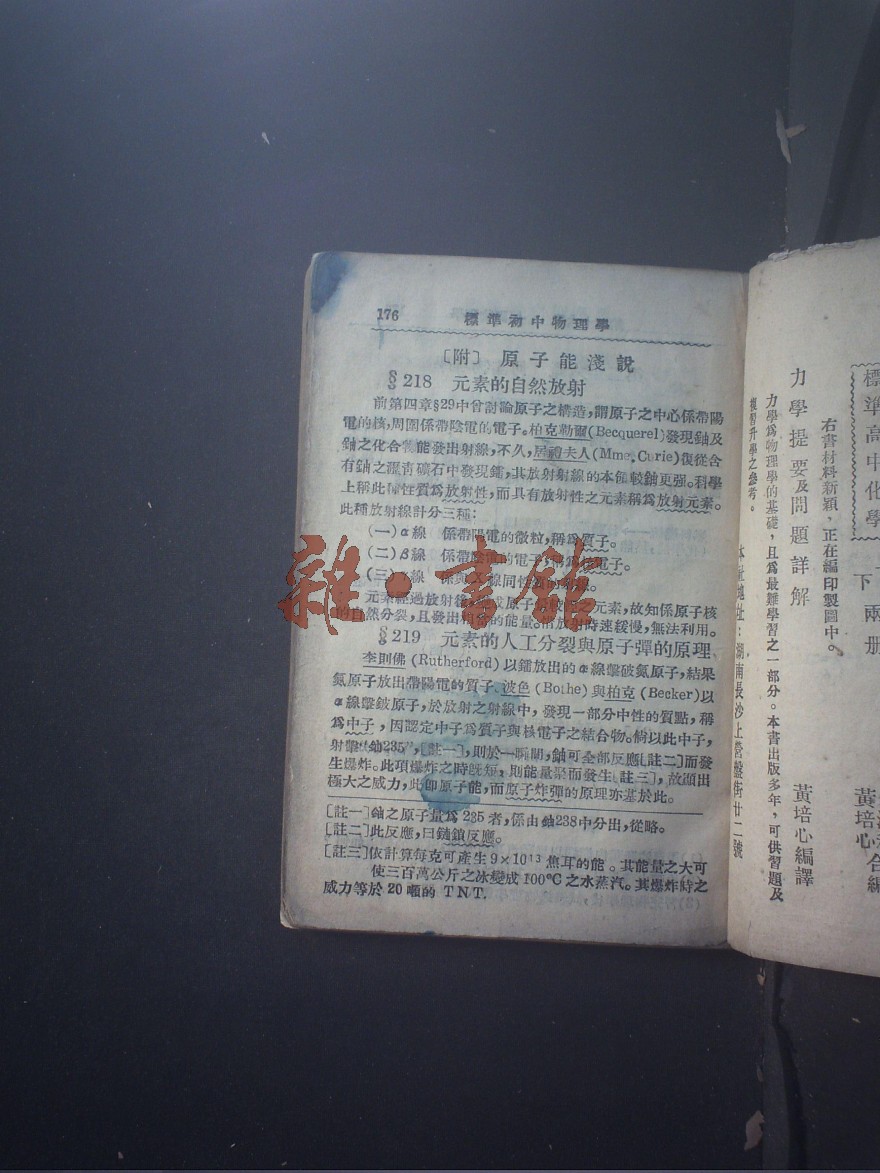 176 標準初中物理學
〔附〕 原子能淺說
§218 元素的自然放射
前第四章§29中曾討論原子之構造，謂原子之中心係帶陽
電的核，周圍係帶陰電的電子。柏克勒爾(Becquerel)發現鈾及
鈾之化合物能發出射線，不久，居禮夫人(Mme. Curie)復從含
有鈾之瀝靑礦石中發現鐳，其放射射線的本領較鈾更强。科學
上稱此種性質爲放射性，而具有放射性之元素稱爲放射元素。
此種放射線計分三種：
(一)α線 係帶陽電的微粒，稱爲質子。
(二)β線 係帶陰電的電子，稱爲核電子。
(三) 線 係與X線同性
元素經過放射後 成原子 元素，故知係原子核
的自然分裂，且發出 的能量。 放射時速緩慢，無法利用。
§219 元素的人工分裂與原子彈的原理
李則佛(Rutherford)以鐳放出的α線擊破氮原子，結果
氮原子放出帶陽電的質子、波色(Bothe)與柏克(Becker)以
α線擊鈹原子，於放射之射線中，發現一部分中性的質點，稱
爲中子，因認定中子爲質子與核電子之結合物。倘以此中子，
射擊“鈾235”，〔註一〕，則於一瞬間，鈾可全部反應〔註二〕而發
生爆炸。此項爆炸之時旣短，則能量聚而發生〔註三〕，故顯出
極大之威力，此卽原子能，而原子炸彈的原理亦基於此。
〔註一〕鈾之原子量爲235者，係由鈾238中分出，從略。
〔註二〕此反應，曰鏈鎖反應。
〔註三〕依計算每克可產生9×10¹³焦耳的能。其能量之大可
使三百萬公斤之冰變成100°C之水蒸汽。其爆炸時之
威力等於20噸的TNT.
雜·書館
標準高中化學
下兩册
右書材料新穎，正在編印製圖中。
力學提要及問題詳解
黃培心編譯
力學爲物理學的基礎，且爲最難學習之一部分。本書出版多年，可供習題及
複習升學之參考。
地址：湖南長沙上營盤街廿二號